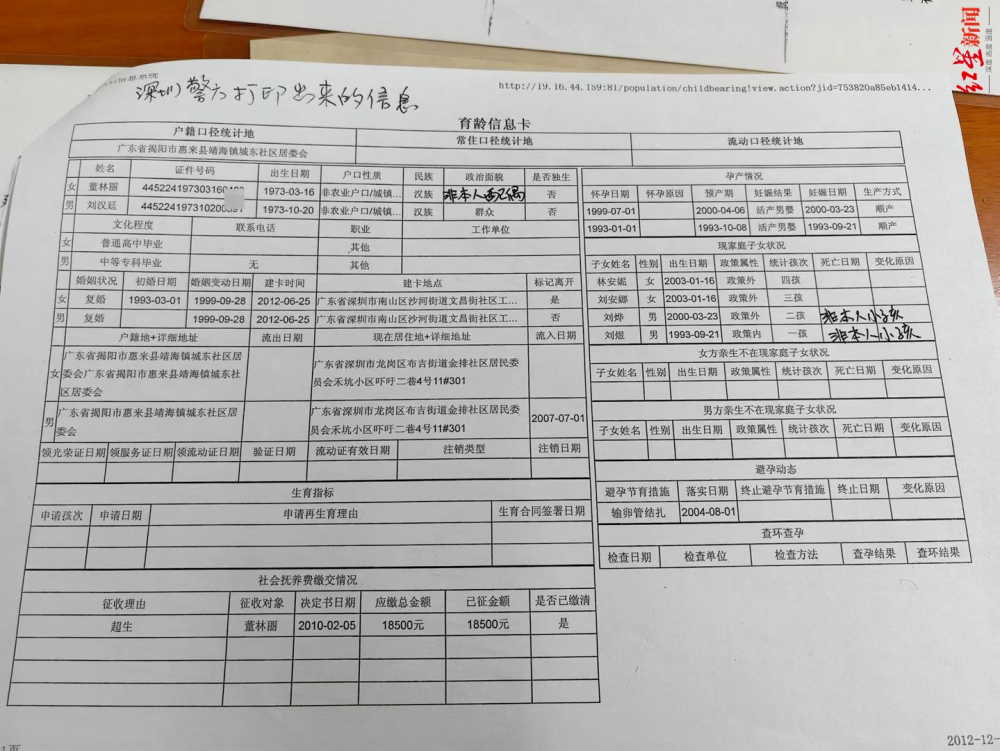 红星新闻
深度 态度 温度
信息系统
深圳警方打印出来的信息
http://19.16.44.159:81/population/childbearing!view.action?jid=753820a85eb1414...
育龄信息卡
户籍口径统计地 常住口径统计地 流动口径统计地
广东省揭阳市惠来县靖海镇城东社区居委会
姓名 证件号码 出生日期 户口性质 民族 政治面貌 是否独生
女 董林丽 445224197303160 1973-03-16 非农业户口/城镇... 汉族 非本人配偶 否
男 刘汉廷 445224197310200 1973-10-20 非农业户口/城镇... 汉族 群众 否
文化程度 联系电话 职业 工作单位
女 普通高中毕业 其他
男 中等专科毕业 无 其他
婚姻状况 初婚日期 婚姻变动日期 建卡时间 建卡地点 标记离开
女 复婚 1993-03-01 1999-09-28 2012-06-25 广东省深圳市南山区沙河街道文昌街社区工... 是
男 复婚 1999-09-28 2012-06-25 广东省深圳市南山区沙河街道文昌街社区工... 否
户籍地+详细地址 流出日期 现在居住地+详细地址 流入日期
女 广东省揭阳市惠来县靖海镇城东社区居
委会广东省揭阳市惠来县靖海镇城东社
区居委会
广东省深圳市龙岗区布吉街道金排社区居民委
员会禾坑小区吓吓二巷4号11#301
男 广东省揭阳市惠来县靖海镇城东社区居
委会
广东省深圳市龙岗区布吉街道金排社区居民委
员会禾坑小区吓吓二巷4号11#301
2007-07-01
领光荣证日期 领服务证日期 领流动证日期 验证日期 流动证有效日期 注销类型 注销日期
生育指标
申请孩次 申请日期 申请再生育理由 生育合同签署日期
社会抚养费缴交情况
征收理由 征收对象 决定书日期 应缴总金额 已征金额 是否已缴清
超生 董林丽 2010-02-05 18500元 18500元 是
孕产情况
怀孕日期 怀孕原因 预产期 妊娠结果 妊娠日期 生产方式
1999-07-01 2000-04-06 活产男婴 2000-03-23 顺产
1993-01-01 1993-10-08 活产男婴 1993-09-21 顺产
现家庭子女状况
子女姓名 性别 出生日期 政策属性 统计孩次 死亡日期 变化原因
林安妮 女 2003-01-16 政策外 四孩
刘安娜 女 2003-01-16 政策外 三孩
刘烨 男 2000-03-23 政策外 二孩 非本人小孩
刘煜 男 1993-09-21 政策内 一孩 非本人小孩
女方亲生不在现家庭子女状况
子女姓名 性别 出生日期 政策属性 统计孩次 死亡日期 变化原因
男方亲生不在现家庭子女状况
子女姓名 性别 出生日期 政策属性 统计孩次 死亡日期 变化原因
避孕动态
避孕节育措施 落实日期 终止避孕节育措施 终止日期 变化原因
输卵管结扎 2004-08-01
查环查孕
检查日期 检查单位 检查方法 查孕结果 查环结果
1页
2012-12-